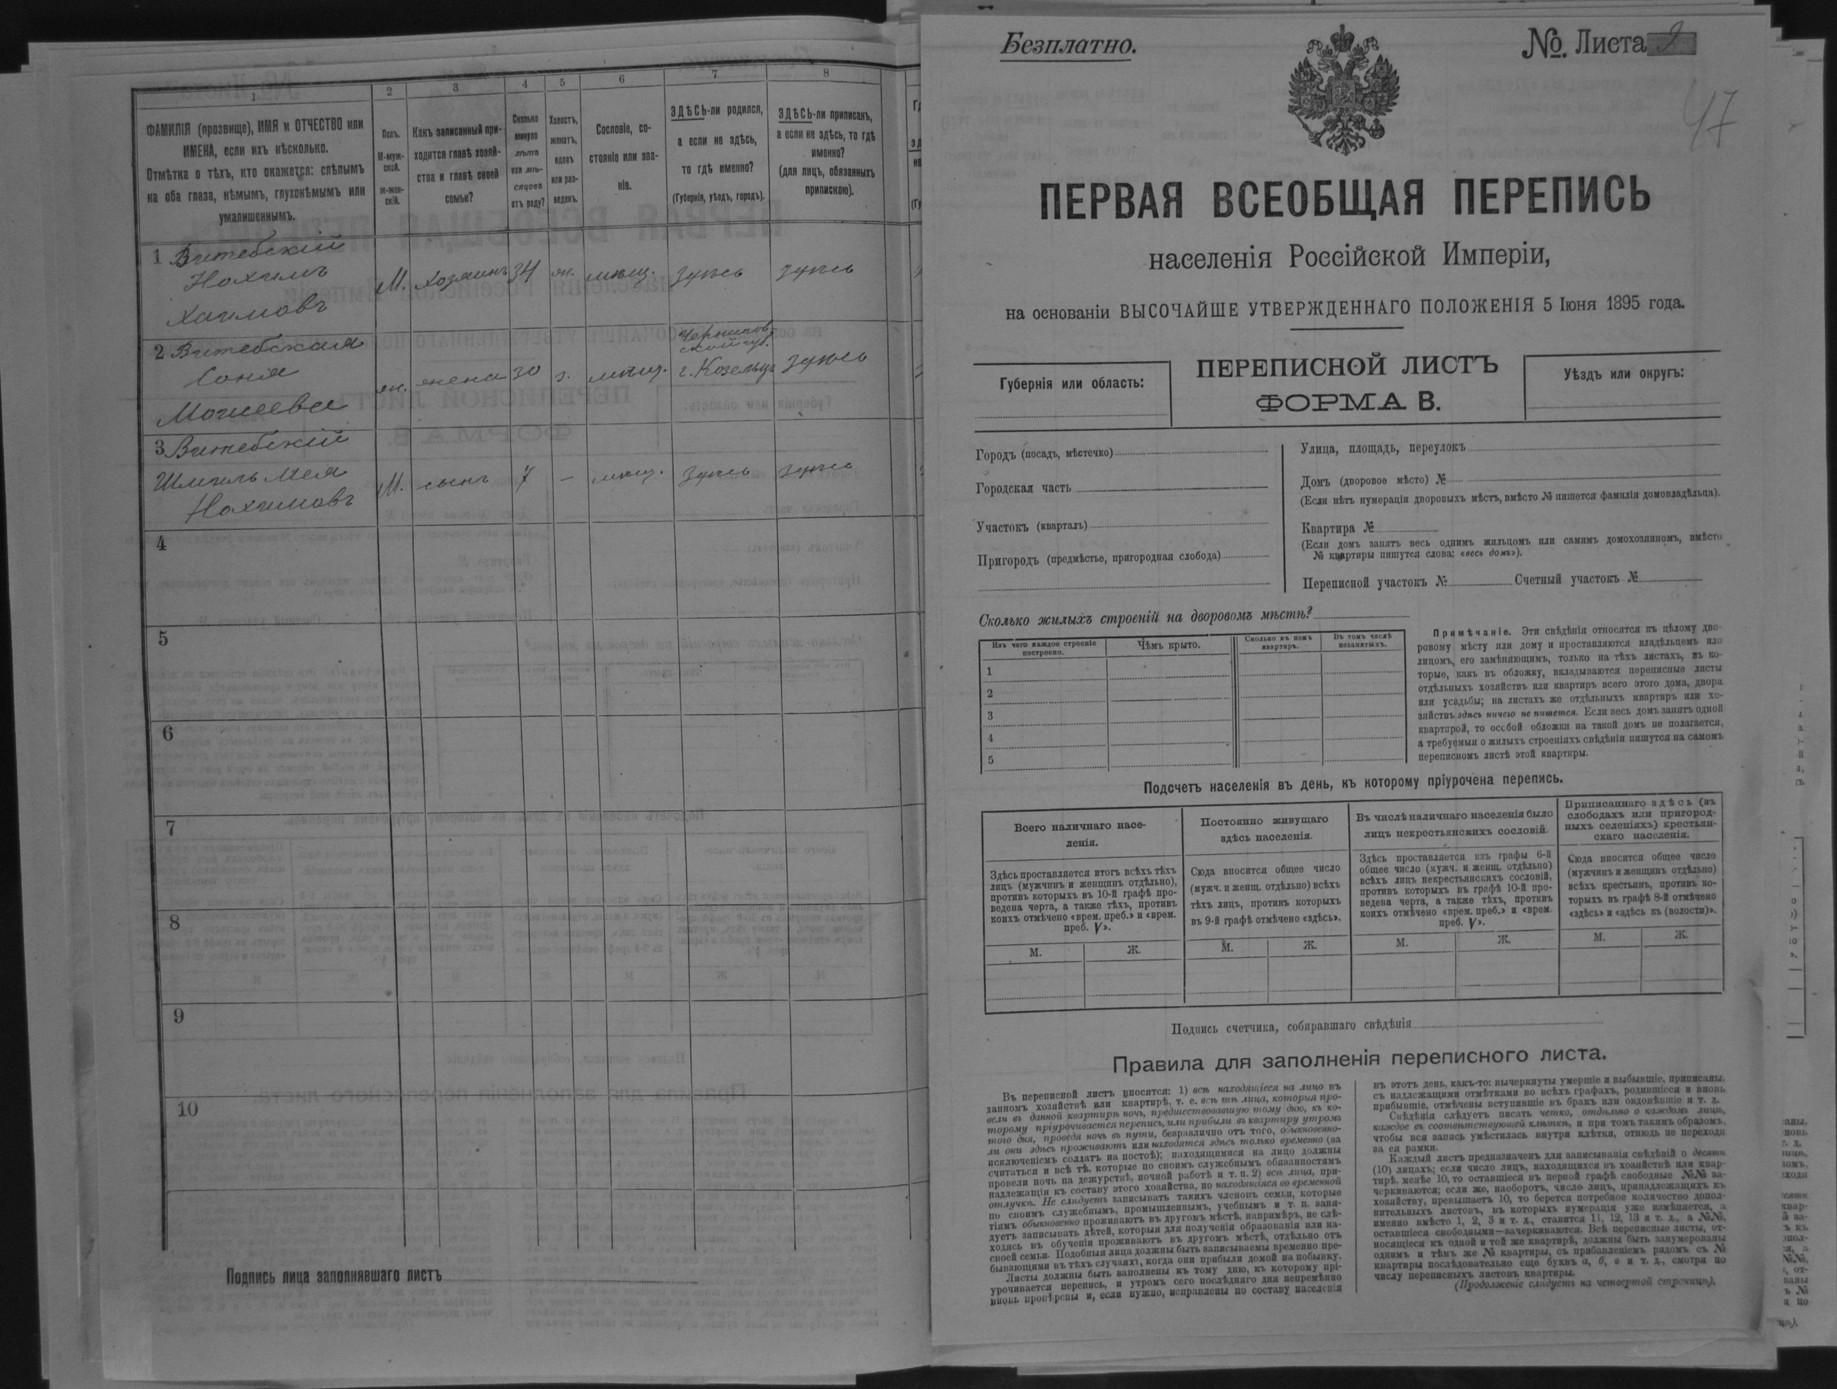 1
2
3
4
5
6
7
8
ФАМИЛІЯ (прозвище), ИМЯ и ОТЧЕСТВО или
ИМЕНА, если ихъ нѣсколько.
Отмѣтка о тѣхъ, кто окажется: слѣпымъ
на оба глаза, нѣмымъ, глухонѣмымъ или
умалишеннымъ.
Полъ.
М-муж-
ской.
ж-жен-
скій.
Какъ записанный при-
ходится главѣ хозяй-
ства и главѣ своей
семьи?
Сколько
минуло
лѣтъ
или мѣ-
сяцевъ
отъ роду?
Холостъ,
женатъ,
вдовъ
или раз-
веденъ.
Сословіе, со-
стояніе или зва-
ніе.
ЗДѢСЬ-ли родился,
а если не здѣсь,
то гдѣ именно?
(Губернія, уѣздъ, городъ).
ЗДѢСЬ-ли приписанъ,
а если не здѣсь, то гдѣ
именно?
(для лицъ, обязанныхъ
припискою).
1 Витебскій
Нохимъ
Хаимовъ
М.
хозяинъ
34
жн.
мѣщ.
здѣсь
здѣсь
2 Витебская
Соня
Мошеева
жн.
жена
30
з.
мѣщ.
Чернигов
ской губ.
г. Козельцъ
здѣсь
3 Витебскій
Шмуль Мея
Нохимовъ
М.
сынъ
7
—
мѣщ.
здѣсь
здѣсь
4
5
6
7
8
9
10
Подпись лица заполнявшаго листъ
Безплатно.
№ Листа 2
47
ПЕРВАЯ ВСЕОБЩАЯ ПЕРЕПИСЬ
населенія Россійской Имперіи,
на основаніи ВЫСОЧАЙШЕ УТВЕРЖДЕННАГО ПОЛОЖЕНІЯ 5 Іюня 1895 года.
Губернія или область:
ПЕРЕПИСНОЙ ЛИСТЪ
ФОРМА В.
Уѣздъ или округъ:
Городъ (посадъ, мѣстечко)
Городская часть
Участокъ (кварталъ)
Пригородъ (предмѣстье, пригородная слобода)
Улица, площадь, переулокъ
Домъ (дворовое мѣсто) №
(Если нѣтъ нумераціи дворовыхъ мѣстъ, вмѣсто № пишется фамилія домовладѣльца).
Квартира №
(Если домъ занятъ весь однимъ жильцомъ или самимъ домохозяиномъ, вмѣсто
№ квартиры пишутся слова: «весь домъ»).
Переписной участокъ № Счетный участокъ №
Сколько жилыхъ строеній на дворовомъ мѣстѣ?
Изъ чего каждое строеніе
построено.
Чѣмъ крыто.
Сколько въ немъ
квартиръ.
Въ томъ числѣ
незанятыхъ.
1
2
3
4
5
Примѣчаніе. Эти свѣдѣнія относятся къ цѣлому дво-
ровому мѣсту или дому и проставляются владѣльцемъ или
лицомъ, его замѣняющимъ, только на тѣхъ листахъ, въ ко-
торые, какъ въ обложку, вкладываются переписные листы
отдѣльныхъ хозяйствъ или квартиръ всего этого дома, двора
или усадьбы; на листахъ же отдѣльныхъ квартиръ или хо-
зяйствъ здѣсь ничего не пишется. Если весь домъ занятъ одной
квартирой, то особой обложки на такой домъ не полагается,
а требуемыя о жилыхъ строеніяхъ свѣдѣнія пишутся на самомъ
переписномъ листѣ этой квартиры.
Подсчетъ населенія въ день, къ которому пріурочена перепись.
Всего наличнаго насе-
ленія.
Здѣсь проставляется итогъ всѣхъ тѣхъ
лицъ (мужчинъ и женщинъ отдѣльно),
противъ которыхъ въ 10-й графѣ про-
ведена черта, а также тѣхъ, противъ
коихъ отмѣчено «врем. преб.» и «врем.
преб. V».
М.
Ж.
Постоянно живущаго
здѣсь населенія.
Сюда вносится общее число
(мужч. и женщ. отдѣльно) всѣхъ
тѣхъ лицъ, противъ которыхъ
въ 9-й графѣ отмѣчено «здѣсь».
М.
Ж.
Въ числѣ наличнаго населенія было
лицъ некрестьянскихъ сословій.
Здѣсь проставляется изъ графы 6-й
общее число (мужч. и женщ. отдѣльно)
всѣхъ лицъ некрестьянскихъ сословій,
противъ которыхъ въ графѣ 10-й про-
ведена черта, а также тѣхъ, противъ
коихъ отмѣчено «врем. преб.» и «врем.
преб. V».
М.
Ж.
Приписаннаго здѣсь (въ
слободахъ или пригород-
ныхъ селеніяхъ) крестьян-
скаго населенія.
Сюда вносится общее число
(мужчинъ и женщинъ отдѣльно)
всѣхъ крестьянъ, противъ ко-
торыхъ въ графѣ 8-й отмѣчено
«здѣсь» и «здѣсь къ (волости)».
М.
Ж.
Подпись счетчика, собиравшаго свѣдѣнія
Правила для заполненія переписного листа.
Въ переписной листъ вносятся: 1) всѣ находящіеся на лицо въ
данномъ хозяйствѣ или квартирѣ, т. е. всѣ тѣ лица, которыя про-
вели въ данной квартирѣ ночь, предшествовавшую тому дню, къ ко-
торому пріурочивается перепись, или прибыли въ квартиру утромъ
того дня, проведя ночь въ пути, безразлично отъ того, обыкновенно-
ли они здѣсь проживаютъ или находятся здѣсь только временно (за
исключеніемъ солдатъ на постоѣ); находящимися на лицо должны
считаться и всѣ тѣ, которые по своимъ служебнымъ обязанностямъ
провели ночь на дежурствѣ, ночной работѣ и т. п. 2) всѣ лица, при-
надлежащія къ составу этого хозяйства, но находящіяся во временной
отлучкѣ. Не слѣдуетъ записывать такихъ членовъ семьи, которые
по своимъ служебнымъ, промышленнымъ, учебнымъ и т. п. заня-
тіямъ обыкновенно проживаютъ въ другомъ мѣстѣ, напримѣръ, не слѣ-
дуетъ записывать дѣтей, которыя для полученія образованія или на-
ходясь въ обученіи проживаютъ въ другомъ мѣстѣ, отдѣльно отъ
своей семьи. Подобныя лица должны быть записываемы временно пре-
бывающими въ тѣхъ случаяхъ, когда они прибыли домой на побывку.
Листы должны быть заполнены къ тому дню, къ которому прі-
урочивается перепись, и утромъ сего послѣдняго дня непремѣнно
вновь провѣрены и, если нужно, исправлены по составу населенія
въ этотъ день, какъ-то: вычеркнуты умершіе и выбывшіе, приписаны,
съ надлежащими отмѣтками во всѣхъ графахъ, родившіеся и вновь
прибывшіе, отмѣчены вступившіе въ бракъ или овдовѣвшіе и т. д.
Свѣдѣнія слѣдуетъ писать четко, отдѣльно о каждомъ лицѣ,
каждое въ соотвѣтствующей клѣткѣ, и при томъ такимъ образомъ,
чтобы вся запись умѣстилась внутри клѣтки, отнюдь не переходя
за ея рамки.
Каждый листъ предназначенъ для записыванія свѣдѣній о десяти
(10) лицахъ; если число лицъ, находящихся въ хозяйствѣ или квар-
тирѣ, менѣе 10, то оставшіеся въ первой графѣ свободные №№ за-
черкиваются; если же, наоборотъ, число лицъ, принадлежащихъ къ
хозяйству, превышаетъ 10, то берется потребное количество допол-
нительныхъ листовъ, въ которыхъ нумерація уже измѣняется, а
именно вмѣсто 1, 2, 3 и т. д., ставится 11, 12, 13 и т. д., а №№,
оставшіеся свободными—зачеркиваются. Всѣ переписные листы, от-
носящіеся къ одной и той же квартирѣ, должны быть занумерованы
однимъ и тѣмъ же № квартиры, съ прибавленіемъ рядомъ съ №
квартиры послѣдовательно еще буквъ а, б, в и т. д., смотря по
числу переписныхъ листовъ квартиры.
(Продолженіе слѣдуетъ на четвертой страницѣ).